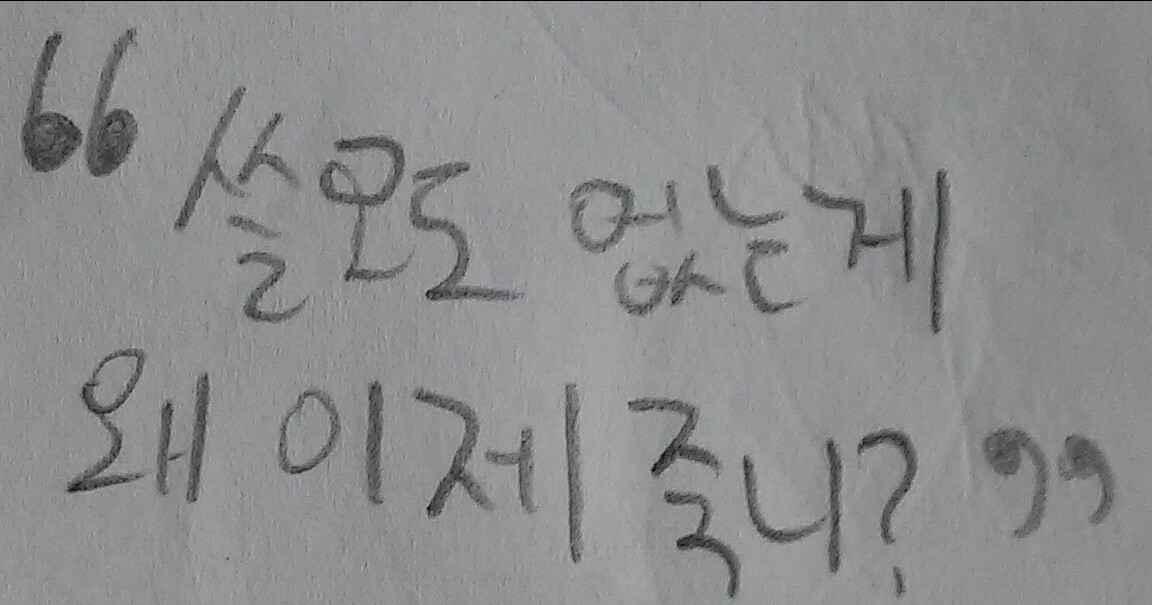 “쓸모도 없는게
왜 이제 죽니?”